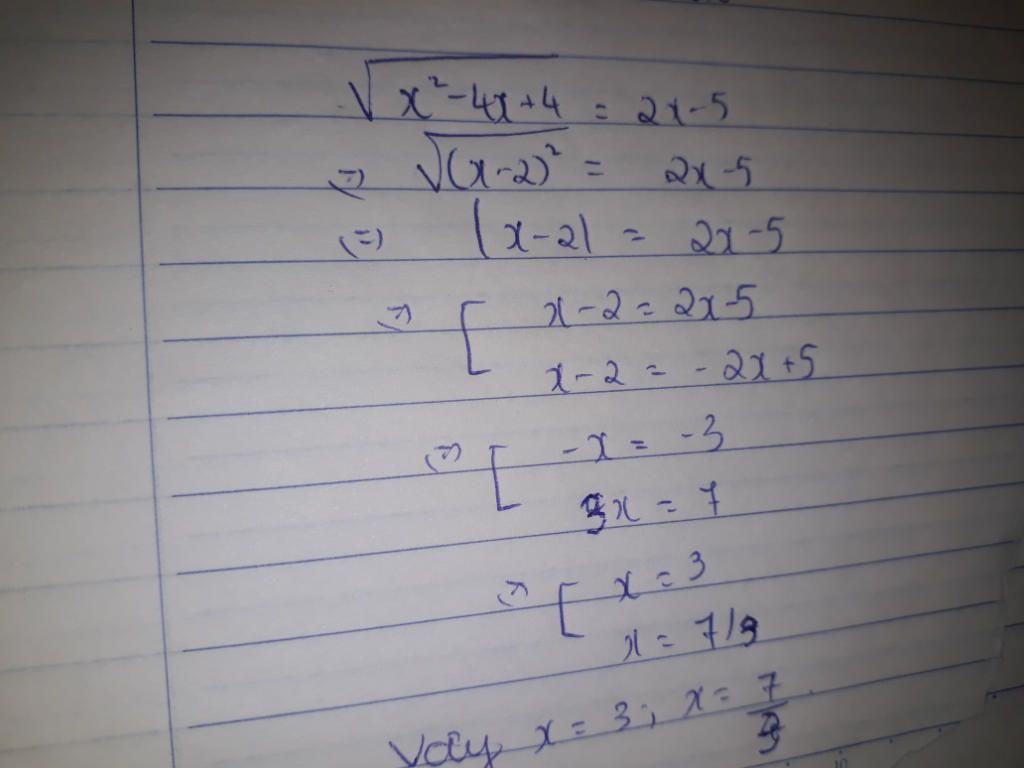 √(x²-4x+4) = 2x-5
⇔ √(x-2)² = 2x-5
⇔ |x-2| = 2x-5
⇔ [ x-2 = 2x-5
x-2 = -2x+5
⇔ [ -x = -3
3x = 7
⇔ [ x = 3
x = 7/3
Vậy x = 3; x = 7/3